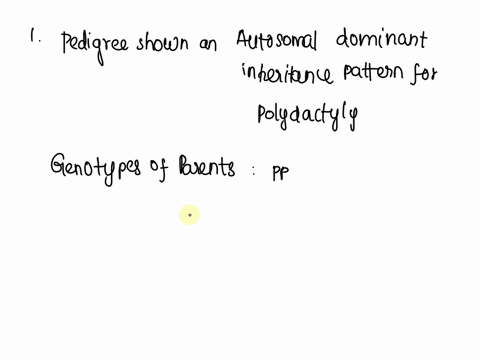 1. Pedigree shown an Autosomal dominant
inheritance pattern for
Polydactyly
Genotypes of Parents : PP